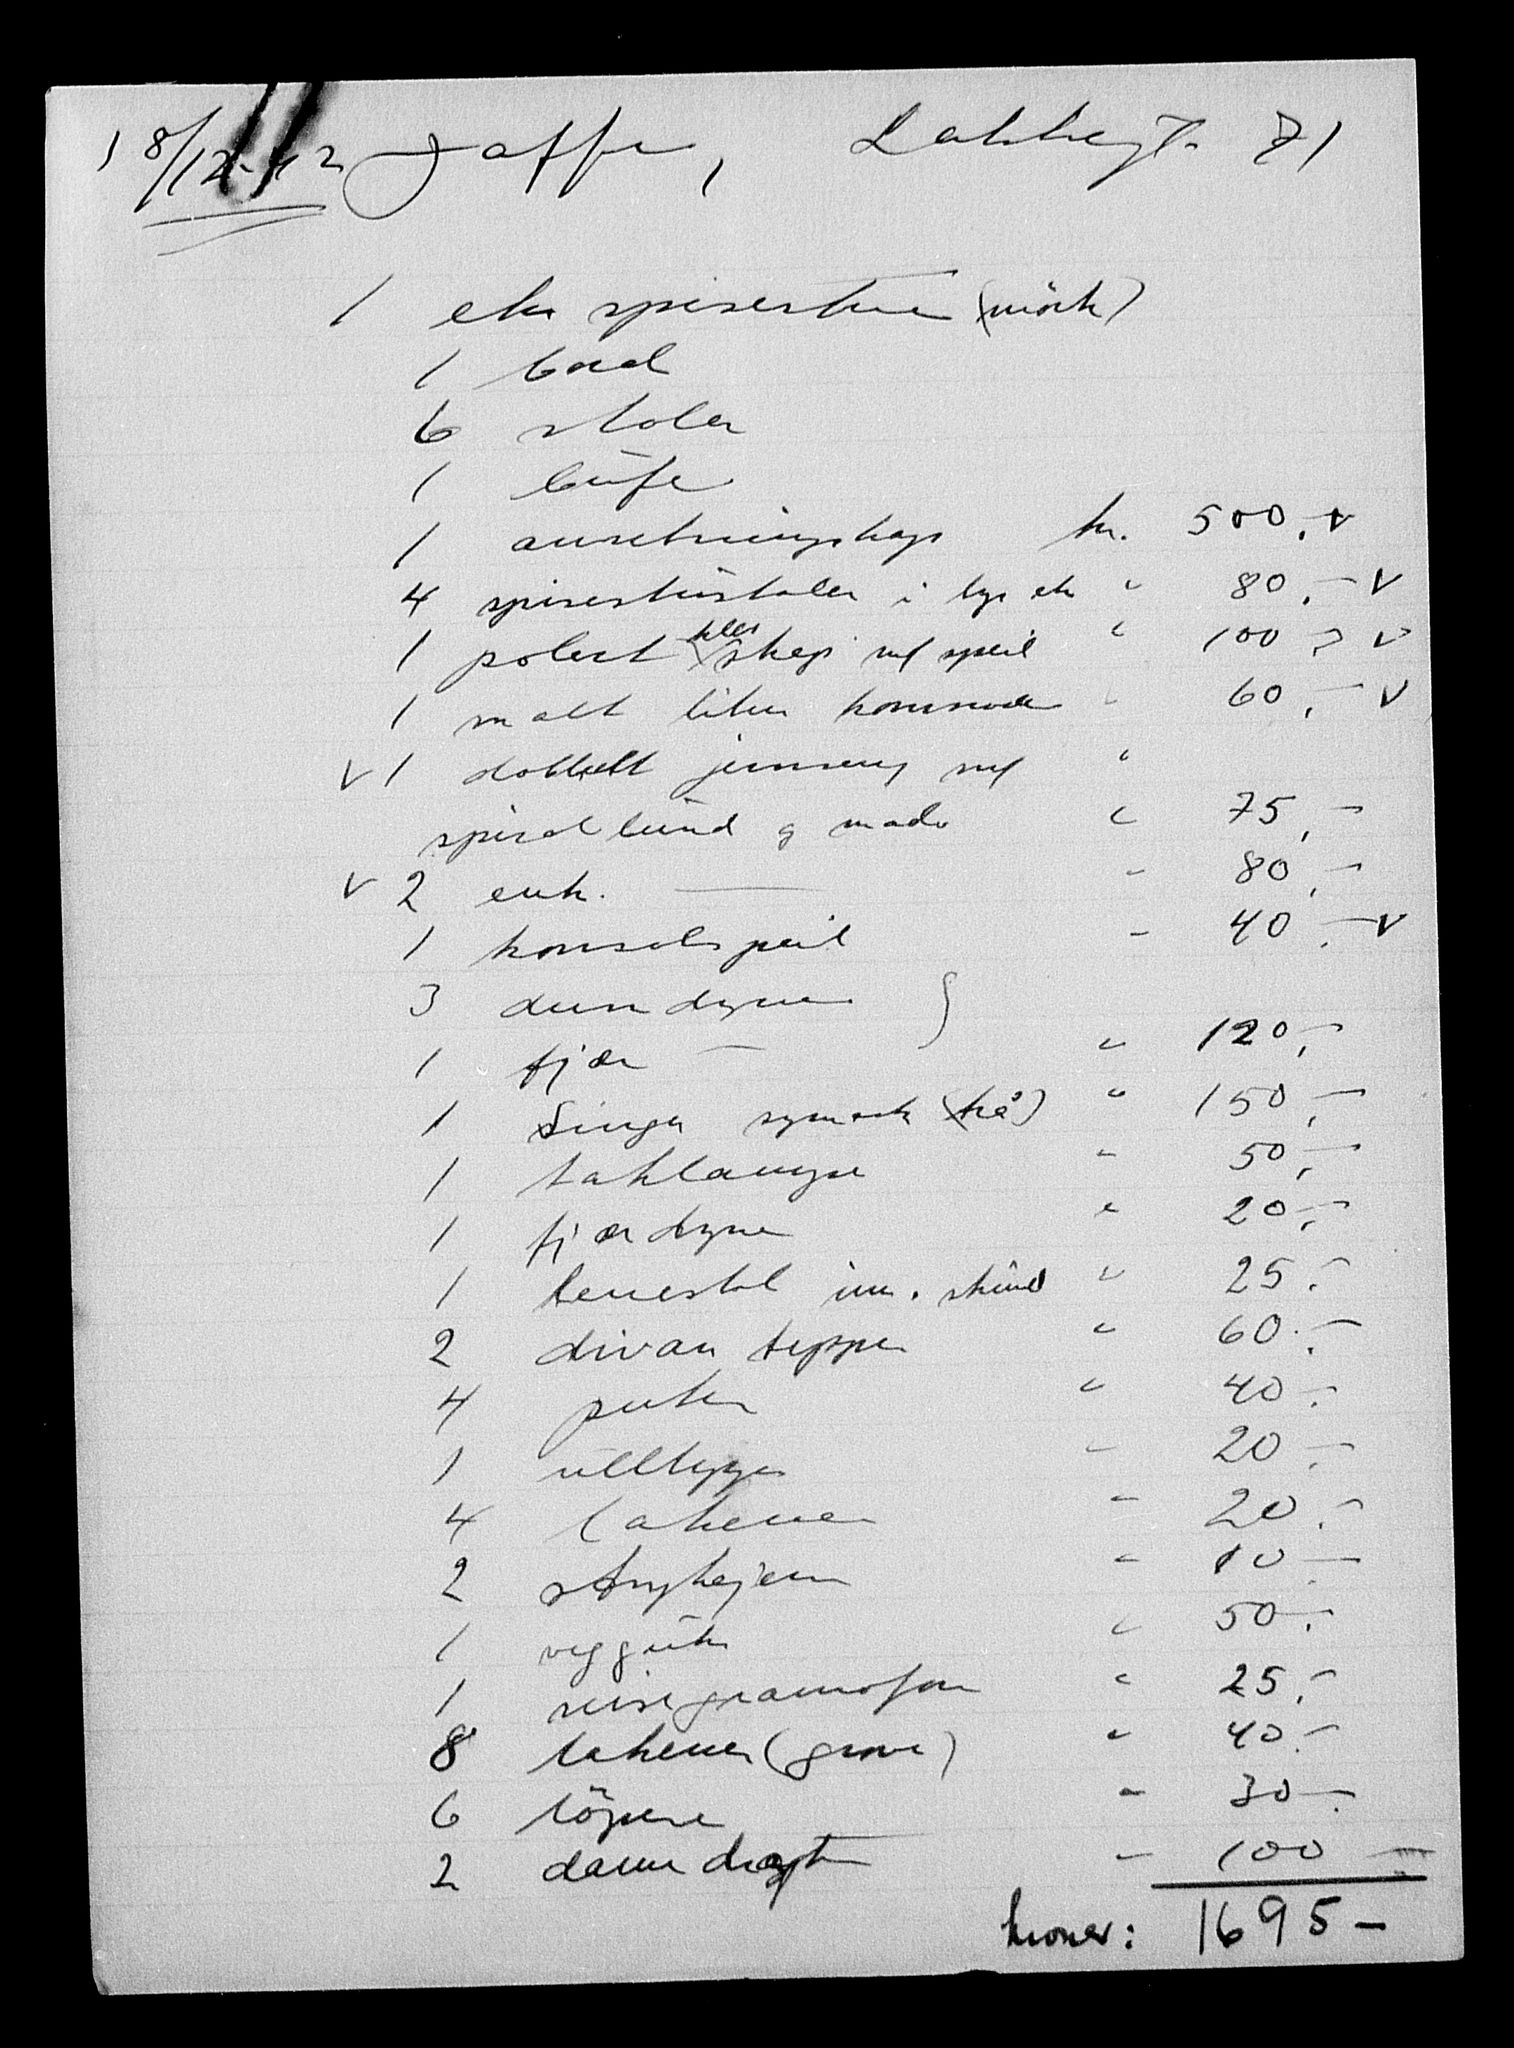 18/12-42 Jaffe, Lakkegt. 71
1 ek spisestue (mörk)
1 bord
6 stoler
1 büfe
1 anretningskap kr. 500,- v
4 spisestüstoler i lys ek " 80,- v
1 polert kles skap m/ speil " 100,- v
1 malt liten kommode " 60,- v
v 1 dobbelt jernseng m/ "
spiralbünd og madr " 75,-
v 2 enk. — " 80,-
1 konsolspeil - 40,- v
3 dundyner }
1 fjær — " 120,-
1 Singer symask (trå) " 150,-
1 taklampe " 50,-
1 fjærdyne " 20,-
1 lenestol im. skind " 25,-
2 divan tepper " 60,-
4 puter " 40,-
1 ullteppe " 20,-
4 lakener " 20,-
2 strykejern " 10,-
1 veggür " 50,-
1 reisegramofon " 25,-
8 lakener (grove) " 40,-
6 löpere " 30,-
2 dame dragt - 100
kroner: 1695-